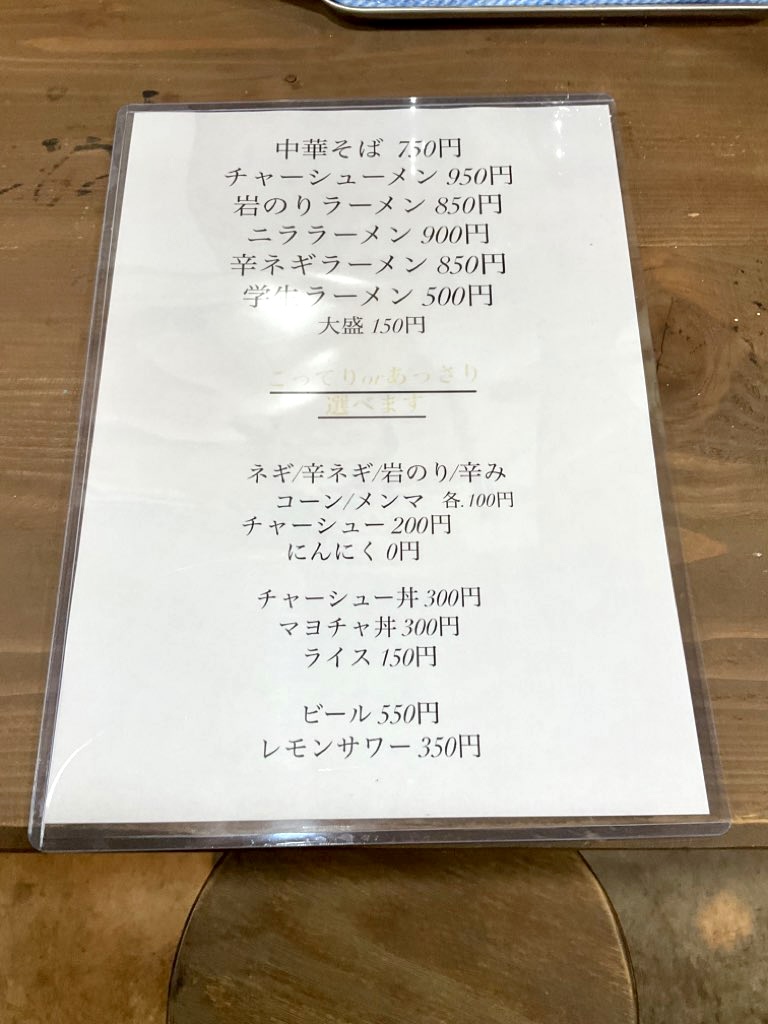 中華そば 750円
チャーシューメン 950円
岩のりラーメン 850円
ニララーメン 900円
辛ネギラーメン 850円
学生ラーメン 500円
大盛 150円
こってりorあっさり
選べます
ネギ/辛ネギ/岩のり/辛み
コーン/メンマ 各.100円
チャーシュー 200円
にんにく 0円
チャーシュー丼 300円
マヨチャ丼 300円
ライス 150円
ビール 550円
レモンサワー 350円